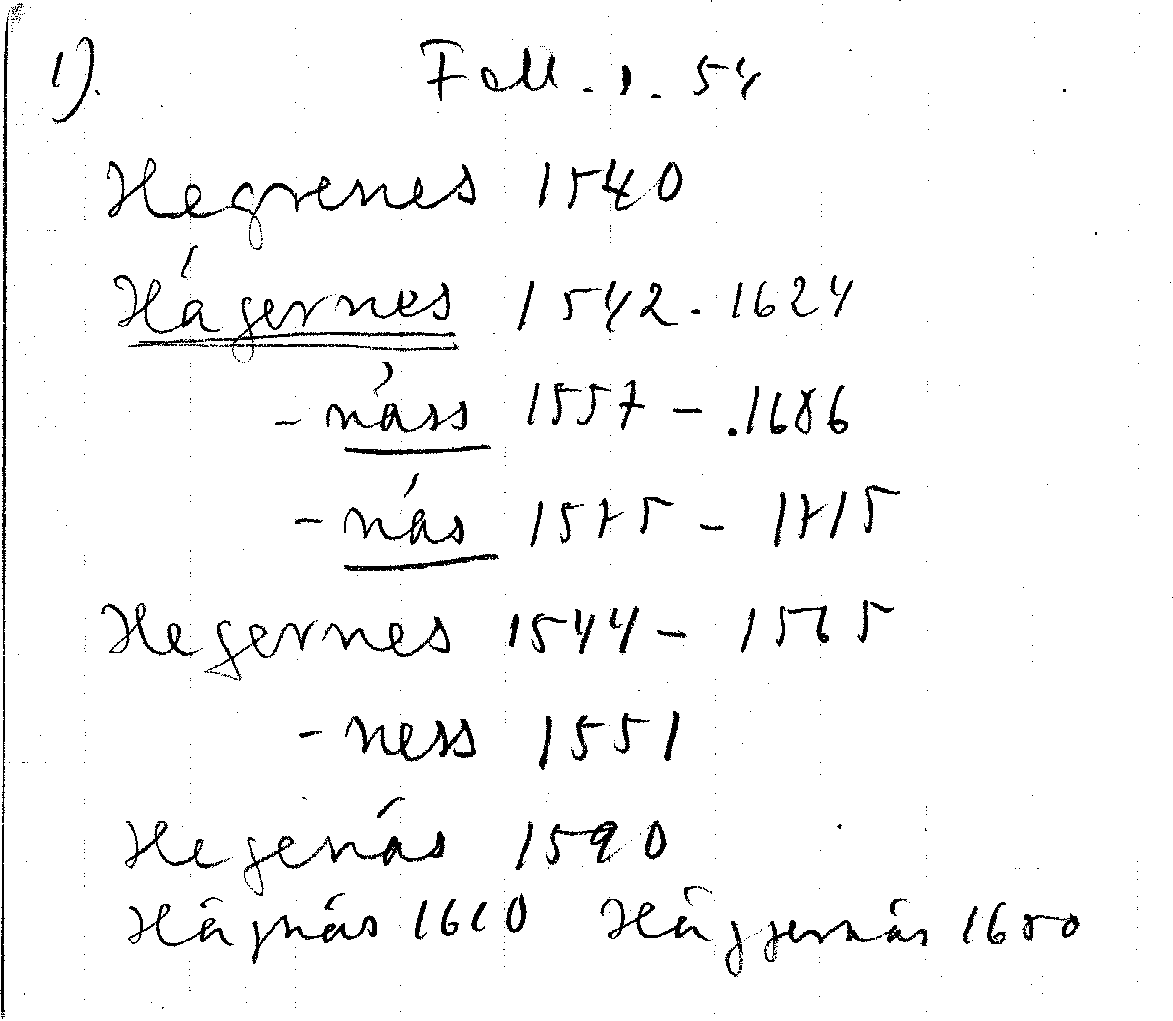 1). Fall. s. 54
Hegrenes 1540
Hágernes 1542 - 1624
- náss 1557 - 1686
- nás 1575 - 1715
Hegernes 1544 - 1565
- ness 1551
Hegenás 1590
Hágnás 1610 Hággernás 1680